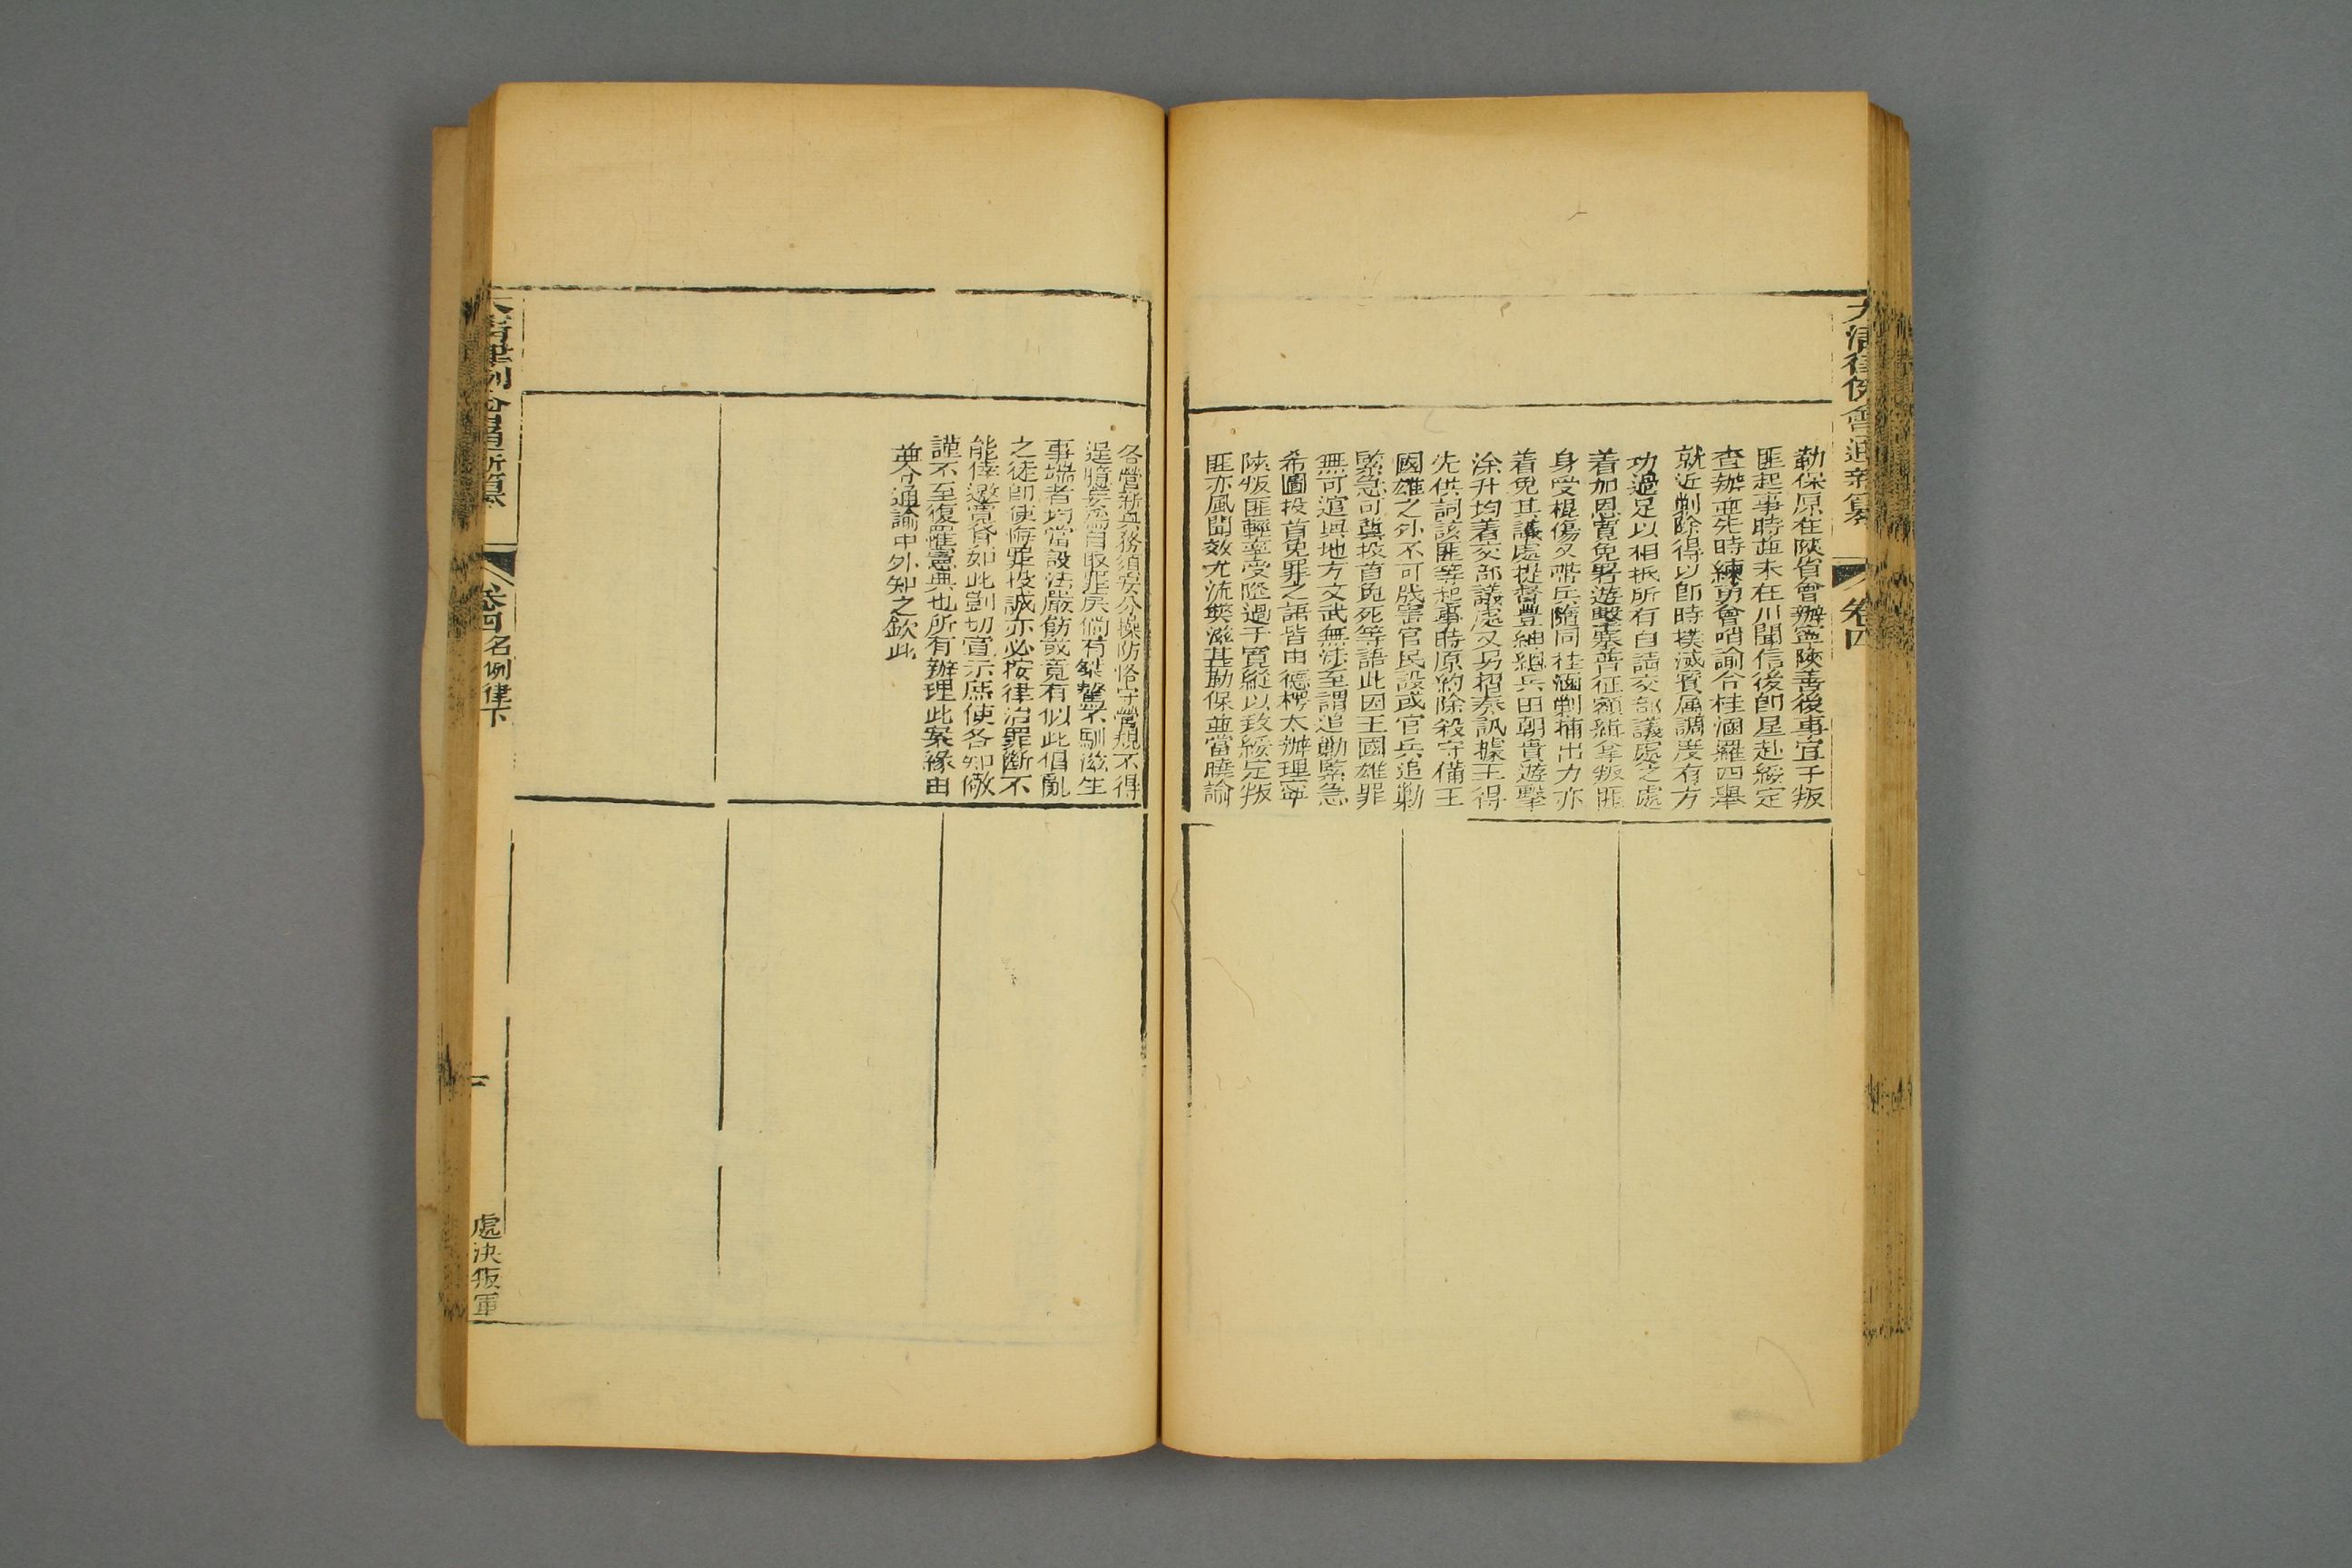 大清律例會通新纂
卷四
勒保原在陝省會辦寧陝善後事宜于叛
匪起事時並未在川聞信後卽星赴綏定
查辦並先時練勇會哨諭令桂涵羅四舉
就近剿除得以卽時撲滅實属調度有方
功過足以相抵所有自請交部議處之處
着加恩寬免署遊擊塞普征額緝拿叛匪
身受棍傷又帶兵隨同桂涵剿捕出力亦
着免其議處提督豐紳總兵田朝貴遊擊
涂升均着交部議處又另摺奏訊據王得
先供詞該匪等起事時原約除殺守備王
國雄之外不可戕害官民設或官兵追剿
緊急可冀投首免死等語此因王國雄罪
無可逭與地方文武無涉至謂追勦緊急
希圖投首免罪之語皆由德楞太辦理寧
陝叛匪輕率受降過于寛縱以致綏定叛
匪亦風聞效尤流獘滋甚勒保並當曉諭
各營新兵務須安分操防恪守營規不得
逞臆妄爲自取罪戾倘有桀驁不馴滋生
事端者均當設法嚴飭或竟有似此倡亂
之徒卽使悔罪投誠亦必按律治罪斷不
能倖邀寛貸如此剴切宣示庶使各知儆
謹不至復罹憲典也所有辦理此案緣由
並令通諭中外知之欽此
大清律例會通新纂
卷四 名例律下
二
處決叛軍